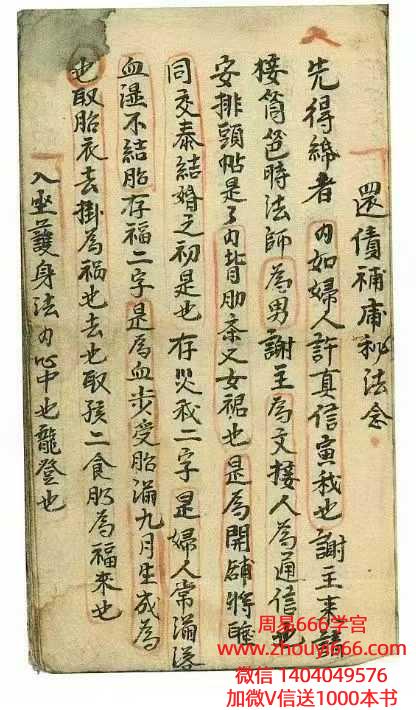 還債補庫秘法念
先得綿者内如婦人許真信寅我也謝主来請
接筒筶時法師為男謝主為文接人為通信也
安排頭帖是了内背肋柰又女裙也是為開鋪將瞻
同交泰結婚之初是也存災我二字是婦人常漏落
血湿不結胎存福二字是為血步受胎滿九月生成為
也取胎衣去掛為禍也去也取孩二食肦為福來也
入座護身法内心中也龍登也
周易666学宫
www.zhouyi666.com
微信 1404049576
加微V信送1000本书